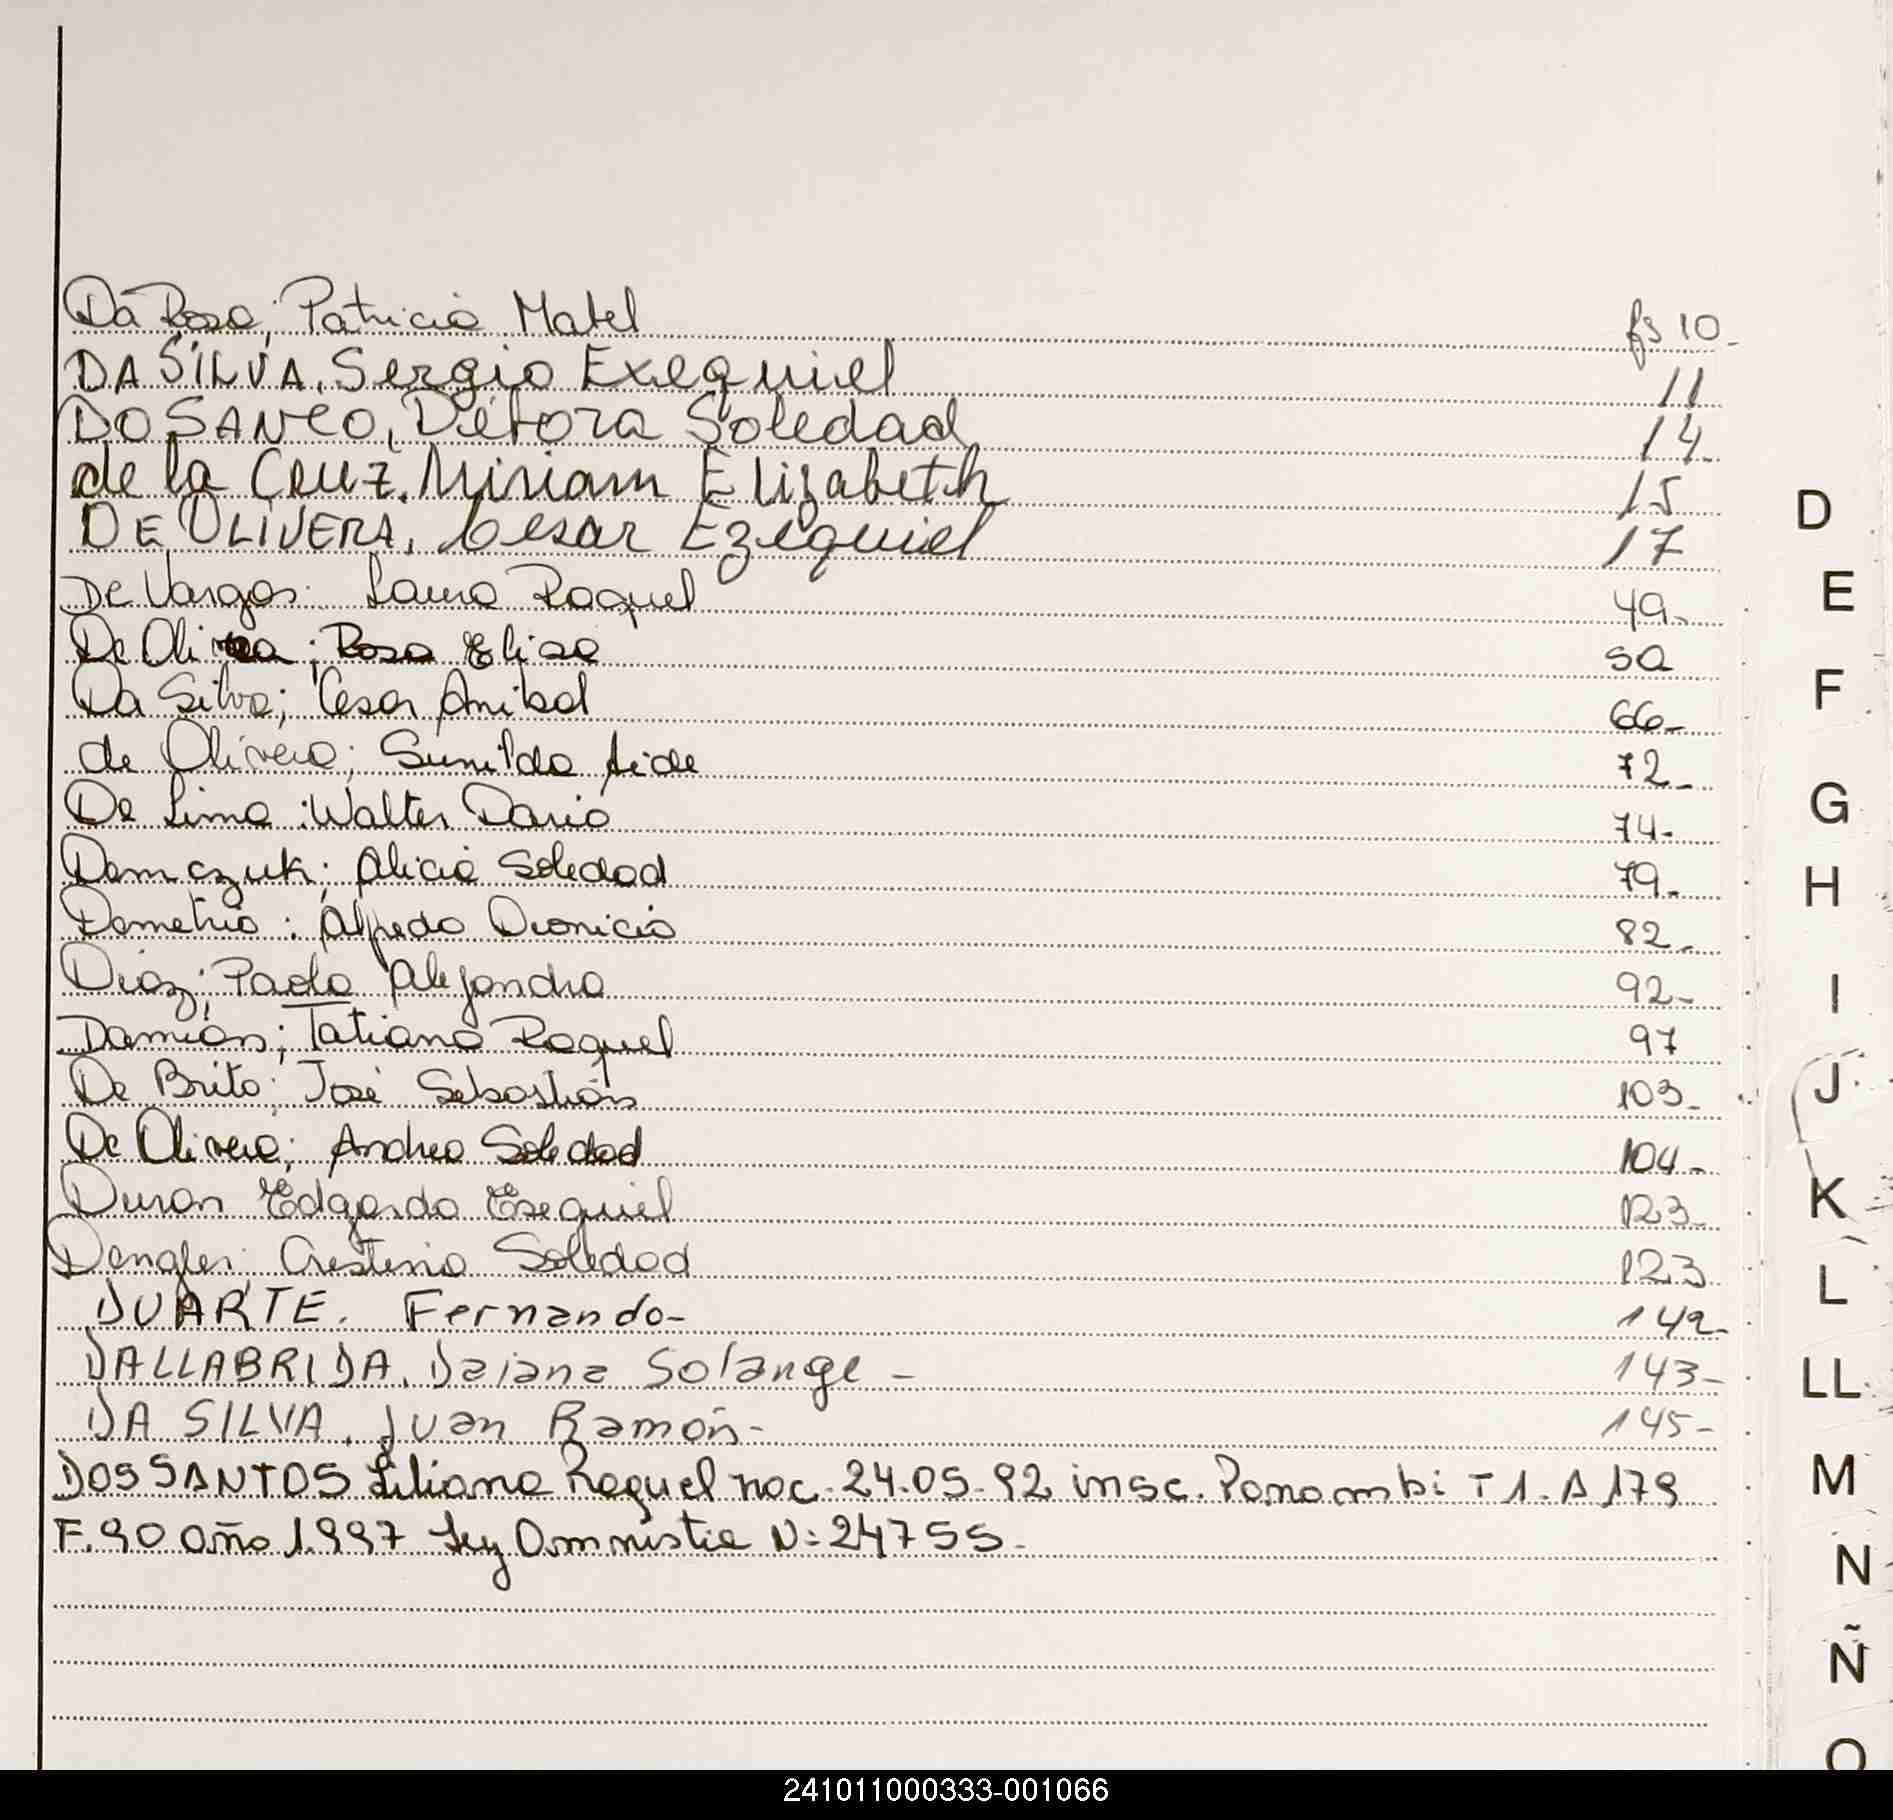 Da Rosa; Patricia Mabel fs 10-
DA SILVA, Sergio Exequiel 11
DO SANTO, Débora Soledad 14-
de la Cruz, Miriam Elizabeth 15
DE OLIVERA, Cesar Ezequiel 17
De Vargas: Laura Raquel 49-
De Olivera; Rosa Elisa 50
Da Silva; Cesar Anibal 66-
de Olivera; Sunilda Aide 72-
De Lima: Walter Dario 74-
Demczuk; Alicia Soledad 79-
Demetrio: Alfredo Dionicio 82-
Diaz; Paola Alejandra 92-
Damián; Tatiana Raquel 97
De Brito; José Sebastián 103-
De Olivera; Andrea Soledad 104-
Duran Edgardo Esequiel 123-
Dengler; Cristina Soledad 123
DUARTE. Fernando- 142-
DALLABRIDA. Daiana Solange - 143-
DA SILVA, Juan Ramón- 145-
DOS SANTOS Liliana Raquel nac. 24.05.92 insc. Panambi T 1. A 179
F. 90 año 1.997 Ley Amnistia N: 24755-
D
E
F
G
H
I
J
K
L
LL
M
N
Ñ
O
241011000333-001066